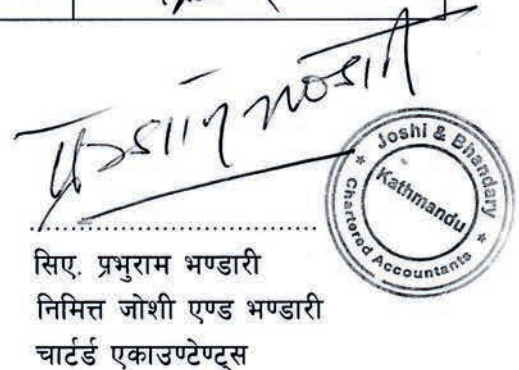 Joshi & Bhandary
Kathmandu
Chartered Accountants
सिए. प्रभुराम भण्डारी
निमित्त जोशी एण्ड भण्डारी
चार्टर्ड एकाउण्टेण्ट्स